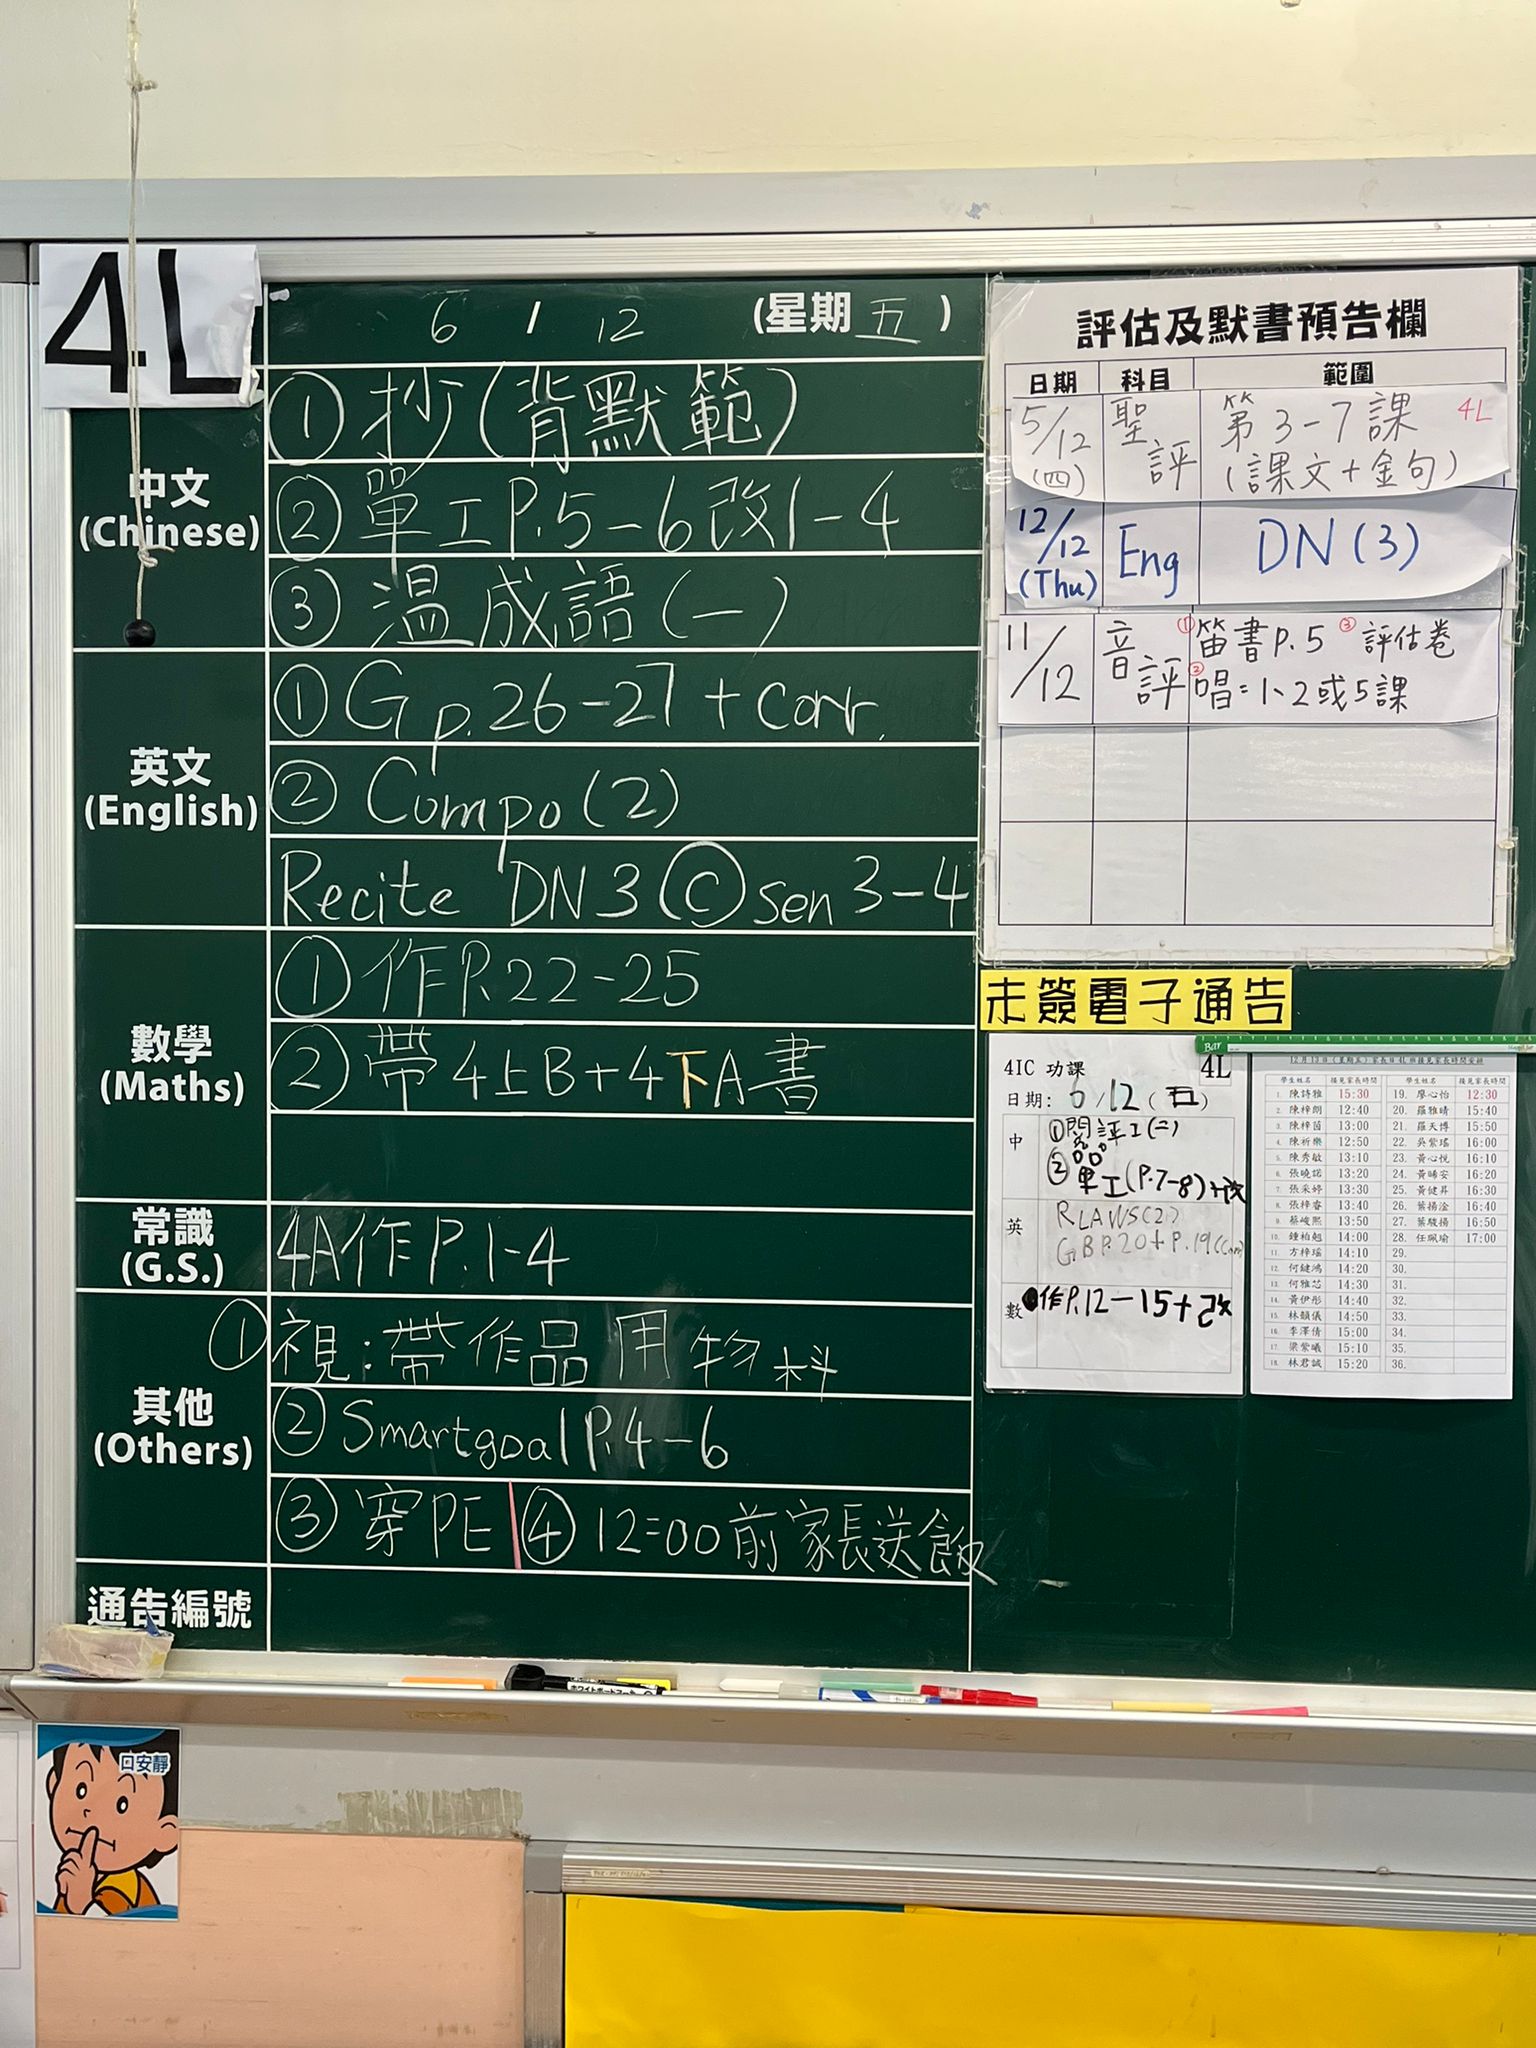 4L
6 / 12 (星期五)
中文
(Chinese)
① 抄(背默範)
② 單工P.5-6改1-4
③ 溫成語(一)
英文
(English)
① G p.26-27 + corr.
② Compo (2)
Recite DN3 Ⓒ sen 3-4
數學
(Maths)
① 作P.22-25
② 帶4上B+4下A書
常識
(G.S.)
4A作P.1-4
其他
(Others)
① 視:帶作品用物料
② Smartgoal P.4-6
③ 穿PE ④ 12:00前家長送飯
通告編號
評估及默書預告欄
日期 科目 範圍
5/12 (四) 聖評 第3-7課 4L
(課文+金句)
12/12 (Thu) Eng DN (3)
11/12 音評 ①笛書P.5 ③評估卷
②唱:1、2或5課
未簽電子通告
4IC 功課 4L
日期: 6/12 (五)
中 ①閱評工(二)
② 單工(P.7-8)+改
英 RLAWS(2)
GB P.20 + P.19(Corr)
數 作P.12-15+改
Bar
學生姓名 接見家長時間 學生姓名 接見家長時間
1. 陳詩雅 15:30 19. 廖心怡 12:30
2. 陳梓朗 12:40 20. 羅雅晴 15:40
3. 陳梓茵 13:00 21. 羅天博 15:50
4. 陳祈樂 12:50 22. 吳紫瑤 16:00
5. 陳秀敏 13:10 23. 黃心悅 16:10
6. 張曉諾 13:20 24. 黃晞安 16:20
7. 張采婷 13:30 25. 黃健昇 16:30
8. 張梓睿 13:40 26. 葉揚淦 16:40
9. 蔡峻熙 13:50 27. 葉駿揚 16:50
10. 鍾柏翹 14:00 28. 任珮瑜 17:00
11. 方梓瑤 14:10 29.
12. 何鍵鴻 14:20 30.
13. 何雅芯 14:30 31.
14. 黃伊彤 14:40 32.
15. 林韻儀 14:50 33.
16. 李澤倩 15:00 34.
17. 梁紫曦 15:10 35.
18. 林君誠 15:20 36.
口安靜